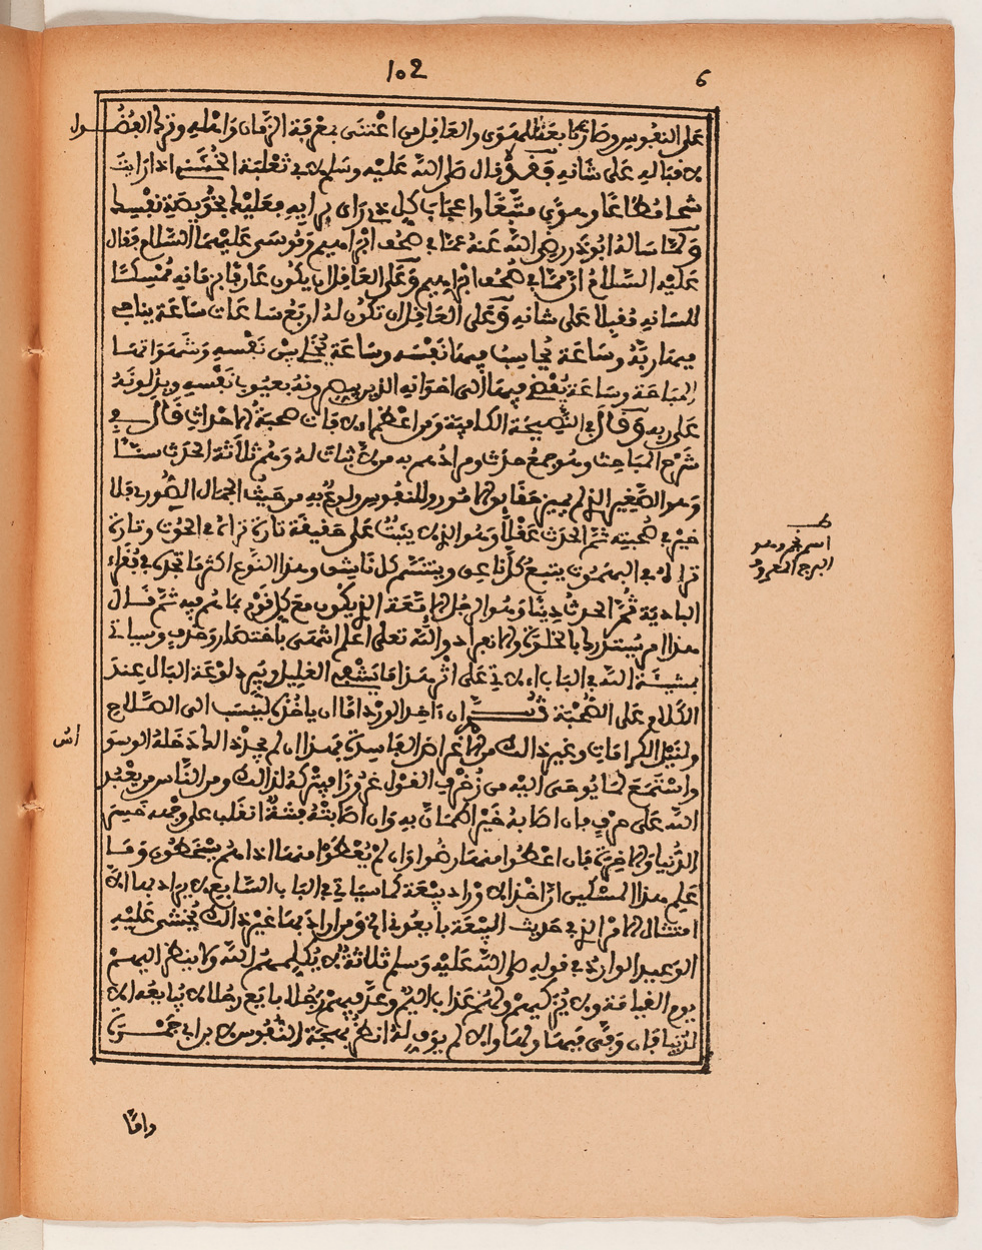 102
6
على النفوس وصارت تابعة للهوى والعاقل من اعتنى بمعرفة الزمان واهله وترك الفضول
اقباله على شانه فقد قال صلى الله عليه وسلم لابي ثعلبة الخشني اذا رايت
شحا مطاعا وهوى متبعا واعجاب كل ذي راي برايه فعليك بخويصة نفسك
ولما ساله ابو ذر رضي الله عنه عما في صحف ابراهيم وموسى عليهما السلام فقال
عليه السلام ان مما في صحف ابراهيم وعلى العاقل ان يكون عارفا بزمانه ممسكا
للسانه مقبلا على شانه وعلى العاقل ان تكون له اربع ساعات ساعة يناجي
فيها ربه وساعة يحاسب فيها نفسه وساعة يخلي بين نفسه وشهواتها
المباحة وساعة يفضي فيها الى اخوانه الذين يبصرونه بعيوب نفسه ويدلونه
على ربه وقال في النصيحة الكافية ومن اعظم الافات صحبة الاحداث قال في
شرح المباحث وهو جمع حدث ومرادهم به من لا ثبات له وهم ثلاثة الحدث سنا
وهو الصغير الذي لم يميز حقايق الامور وللنفوس ولوع به من حيث الجمال الصوري فلا
خير في صحبته ثم الحدث عقلا وهو الذي لا يثبت على حقيقة تارة تراه في الحوت وتارة
تراه في البهموت يتبع كل ناعق ويتنسم كل ناسم وهذا النوع اكثر ما تجده في فقراء
البادية ثم الحدث دينا وهو الرجل الامعة الذي يكون مع كل قوم بما هم فيه ثم قال
هذا امر يستدرك بالخلوة والانفراد والله تعلى اعلم انتهى باختصار وحذف وسياتي
بمشيئة الله في الباب الاتي على اثر هذا ما يشفي الغليل ويبرد لوعة البال عند
الكلام على الصحبة
ولنيل الكرامات وغير ذلك من الاغراض الفاسدة فهذا ان لم يجد ذلك ادخله الوسو
واستمع لما يوحى اليه من زخرف القول غرورا فيتركه لذلك ومن الناس من يعبد
الله على حرف فان اصابه خير اطمان به وان اصابته فتنة انقلب على وجهه خسر
الدنيا والاخرة فان اعطوا منها رضوا وان لم يعطوا منها اذا هم يسخطون وما
علم هذا المسكين ان اخذ الاوراد بيعة كما سياتي في الباب السابع لا يراد بها الا
امتثال الامر الذي في حديث البيعة بايعوني الخ ومن اراد بها غير ذلك يخشى عليه
الوعيد الوارد في قوله صلى الله عليه وسلم ثلاثة لا يكلمهم الله ولا ينظر اليهم
يوم القيامة ولا يزكيهم ولهم عذاب اليم وعد فيهم رجلا بايع رجلا لا يبايعه الا
لدنيا فان وفى فيها ولها والا لم يوف له انظر بهجة النفوس لابن ابي جمرة
اسم نجم وهو
البرج المعروف
واما